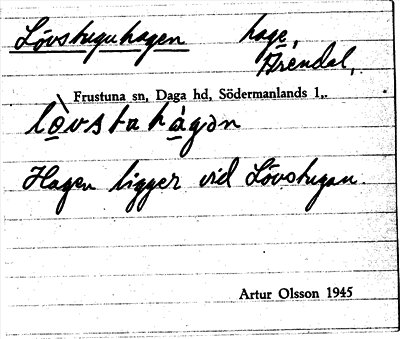 Lövstuguhagen hage,
Årendal,
Frustuna sn, Daga hd, Södermanlands l,.
lòvstahágən
Hagen ligger vid Lövstugan.
Artur Olsson 1945